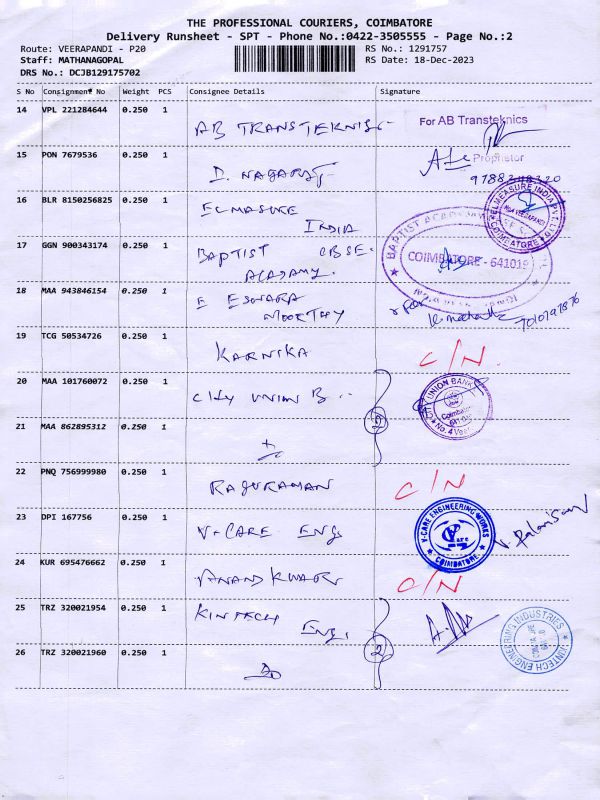 THE PROFESSIONAL COURIERS, COIMBATORE
Delivery Runsheet - SPT - Phone No.:0422-3505555 - Page No.:2
Route: VEERAPANDI - P20 RS No.: 1291757
Staff: MATHANAGOPAL RS Date: 18-Dec-2023
DRS No.: DCJB129175702
S No Consignment No Weight PCS Consignee Details Signature
14 VPL 221284644 0.250 1
AB TRANSTEKNIS
For AB Transteknics
Proprietor
15 PON 7679536 0.250 1
I. NAGARAJ
16 BLR 8150256825 0.250 1
ELMASURE INDIA
ELMEASURE INDIA PVT LTD
COIMBATORE
17 GGN 900343174 0.250 1
BAPTIST CBSE
ACADAMY.
BAPTIST ACADEMY
COIMBATORE - 641019
18 MAA 943846154 0.250 1
E ESWARA
MOORTHY
19 TCG 50534726 0.250 1
KARNIKA
C/N.
20 MAA 101760072 0.250 1
City UNION B
CITY UNION BANK
Coimbatore
21 MAA 862895312 0.250 1
22 PNQ 756999980 0.250 1
RAGURAMAN
C/N
23 DPI 167756 0.250 1
V-CARE ENG
V-CARE ENGINEERING WORKS
COIMBATORE
V. Palanisamy
24 KUR 695476662 0.250 1
ANAND KUMAR
C/N
25 TRZ 320021954 0.250 1
KINTECH
ENG.
ENGINEERING INDUSTRIES
26 TRZ 320021960 0.250 1
2